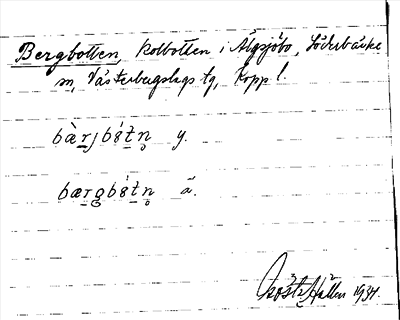 Bergbotten, kolbotten i Älgsjöbo, Söderbärke
sn, Västerbergslags tg, Kopp l.
bæ̀rjbót̠n̥ y.
bærgbót̠n̥ ä.
Gösta Hallen 1934.